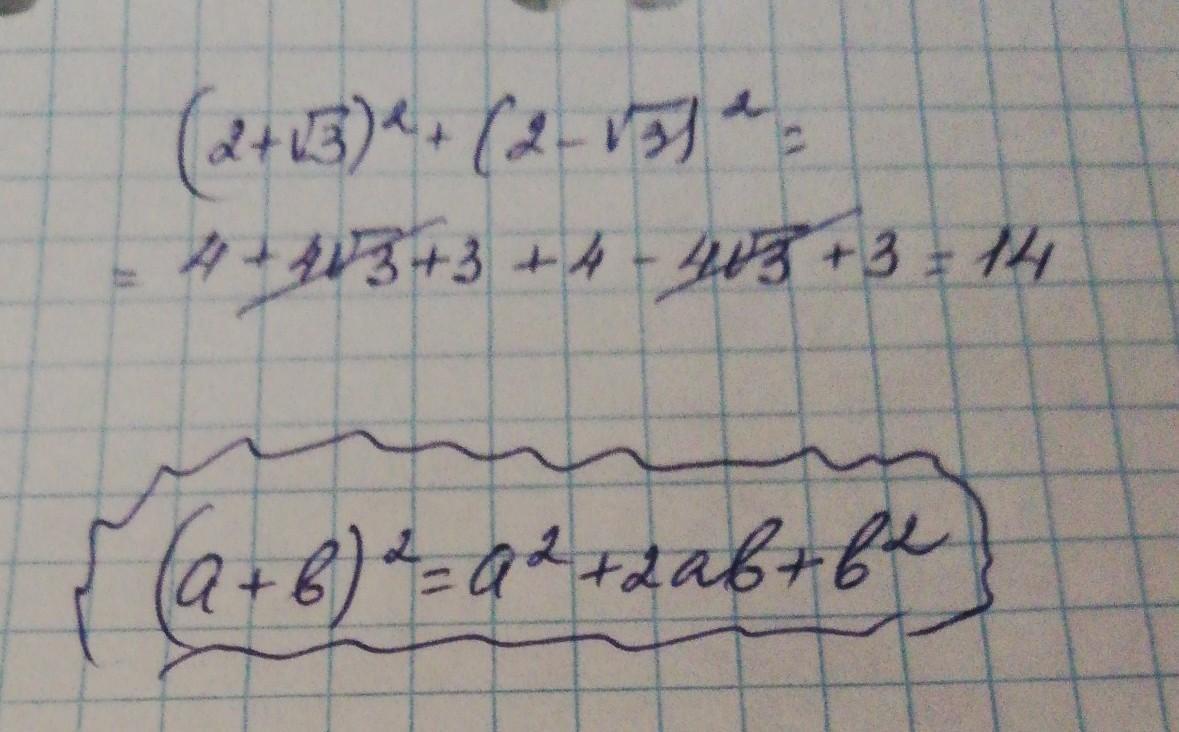 (2+√3)² + (2-√3)² =
= 4 + 4√3 + 3 + 4 - 4√3 + 3 = 14
(a + b)² = a² + 2ab + b²